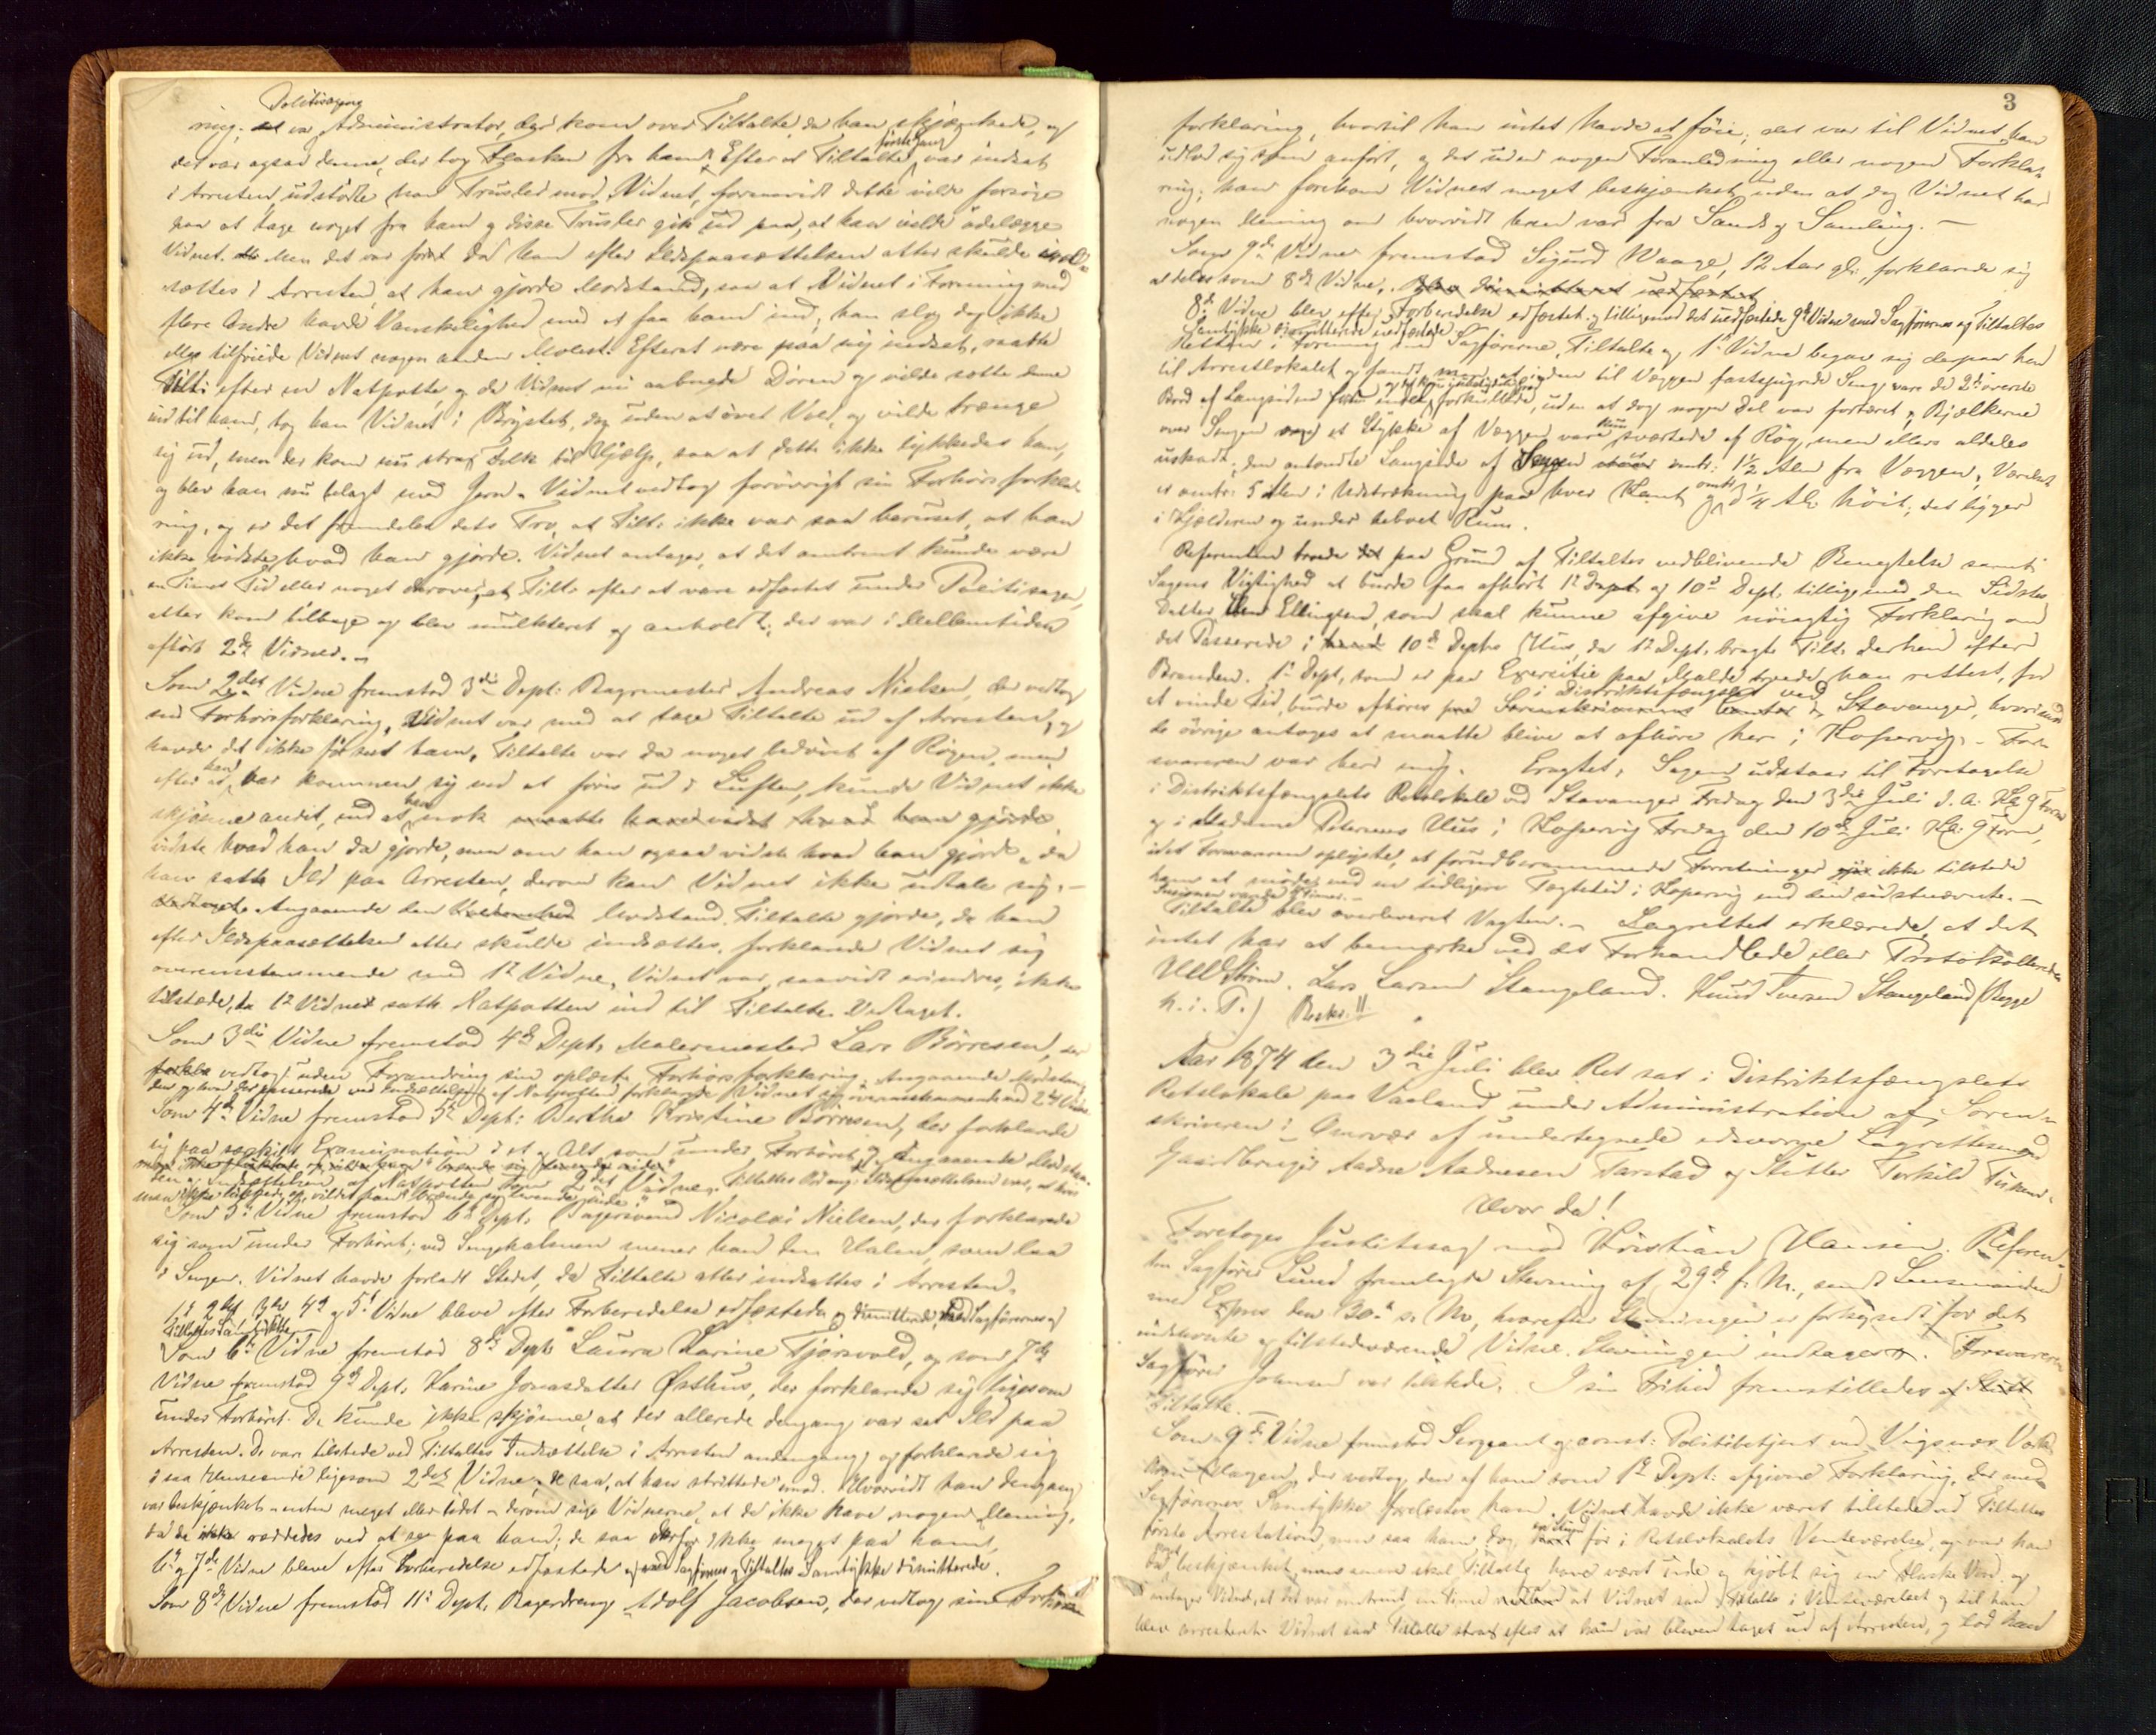 Politisagens
ring; det var Administrator, der kom over Tiltalte, da han skjænkede, og
det var ogsaa denne, der tog Flasken fra ham. Efter at Tiltalte første Gang var indsat
i Arresten, udstødte han Trusler mod Vidnet, forsaavidt dette vilde forsøge
paa at tage noget fra ham og disse Trusler gik ud paa, at han vilde ødelægge
Vidnet. Men det var først da han efter Ildspaasættelsen atter skulde ind-
sættes i Arresten, at han gjorde Modstand, saa at Vidnet i Forening med
flere Andre havde Vanskelighed med at faa ham ind; han slog dog ikke
eller tilføiede Vidnet nogen anden Molest. Efterat være paa ny indsat, raabte
Tilt: efter en Natpotte, og da Vidnet nu aabnede Døren og vilde sætte denne
ind til ham, tog han Vidnet i Brystet, dog uden at øve Vold, og vilde trænge
sig ud, men der kom nu strax Folk til Hjælp, saa at dette ikke lykkedes ham,
og blev han nu belagt med Jern. Vidnet vedtog forøvrigt sin Forhørsforkla-
ring, og er det fremdeles dets Tro, at Tilt: ikke var saa beruset, at han
ikke vidste, hvad han gjorde. Vidnet antager, at det omtrent kunde være
en Times Tid eller noget derover, at Tilt: efter at være edfæstet under Politisagen,
atter kom tilbage og blev mulkteret og anholdt; der var i Mellemtiden
afhørt 2de Vidner. –
Som 2det Vidne fremstod 3die Dept: Bagermester Andreas Nielsen, der vedtog
sin Forhørsforklaring. Vidnet var med at tage Tiltalte ud af Arresten, og
havde det ikke før seet ham. Tiltalte var da noget bedøvet af Røgen, men
efter at han var kommen sig ved at føres ud i Luften, kunde Vidnet ikke
skjønne andet, end at han nok maatte have vidst hvad han gjorde
vidste hvad han da gjorde, men om han ogsaa vidste hvad han gjorde, da
han satte Ild paa Arresten, derom kan Vidnet ikke udtale sig. –
Vedtaget. Angaaende den Modstand Tiltalte gjorde, da han
efter Ildspaasættelsen atter skulde indsættes, forklarede Vidnet sig
overensstemmende med 1ste Vidne. Vidnet var, saavidt erindres, ikke
tilstede, da 1ste Vidne satte Natpotten ind til Tiltalte. Vedtaget.
Som 3die Vidne fremstod 4de Dept: Malermester Lars Børresen, der
vedtog uden Forandring sin oplæste Forhørsforklaring. Angaaende Modstan-
den og hvad der passerede ved Indsættelsen af Natpotten forklarede Vidnet sig overensstemmende med 2det Vidne.
Som 4de Vidne fremstod 5te Dept: Berthe Kristine Børresen, der forklarede
sig paa særskilt Examination i et og Alt som under Forhøret. Angaaende Modstan-
den og Indsættelsen af Natpotten som 2det Vidne. Tiltaltes Ord ang: Ildspaasættelsen var, at hvis
man ikke lukkede op, vilde han "brænde sig levende inde".
Som 5te Vidne fremstod 6te Dept: Bagersvend Nicolai Nielsen, der forklarede
sig som under Forhøret; ved Sengehalmen mener han den Halm, som laa
i Sengen. Vidnet havde forladt Stedet, da Tiltalte atter indsattes i Arresten.
1ste, 2det, 3die, 4de og 5te Vidne bleve efter Forberedelse edfæstede og dimitterede, med Sagførernes og
Tiltaltes Samtykke. –
Som 6te Vidne fremstod 8de Dept: Laura Karine Fjørsvold, og som 7de
Vidne fremstod 9de Dept: Karine Jonasdatter Østhus, der forklarede sig ligesom
under Forhøret. De kunde ikke skjønne, at der allerede dengang var sat Ild paa
Arresten. De vare tilstede ved Tiltaltes Indsættelse i Arresten andengang, og forklarede sig
i saa Henseende ligesom 2det Vidne; de saa, at han strittede imod. Hvorvidt han dengang
var beskjænket – enten meget eller lidet – derom sige Vidnerne, at de ikke have nogen Mening,
da de ræddedes ved at se paa ham; de saa derfor ikke meget paa ham.
6te og 7de Vidne bleve efter Forberedelse edfæstede og med Sagførernes og Tiltaltes Samtykke dimitterede.
Som 8de Vidne fremstod 11te Dept: Bagerdreng Adolf Jacobsen, der vedtog sin Forhørs
3
forklaring, hvortil han intet havde at føie; det var til Vidnet, han
udlod sig som anført, og det uden nogen Foranledning eller nogen Forkla-
ring; han forekom Vidnet meget beskjænket, uden at dog Vidnet har
nogen Mening om hvorvidt han var fra Sands og Samling. –
Som 9de Vidne fremstod Sigurd Waage, 12 Aar gl:, forklarede sig
aldeles som 8de Vidne.
8de Vidne blev efter Forberedelse edfæstet og tilligemed det uedfæstede 9de Vidne med Sagførernes og Tiltaltes
Samtykke dimitterede.
Retten i Forening med Sagførerne, Tiltalte og 1ste Vidne begav sig derpaa hen
til Arrestlokalet og fandt man, at i den til Væggen fastspigrede Seng, vare de 2de øverste
Bord af Langsiden forkullede, uden at dog nogen Del var fortæret; Bjælkerne
over Sengen og et Stykke af Væggen vare kun sværtede af Røg, men ellers aldeles
uskadt; den antændte Langside af Sengen er omtr: 1½ Alen fra Væggen. Værelset
er omtr: 5 Alen i Udstrækning paa hver Kant og omtr: 3¼ Al: høit; det ligger
i Kjælderen og under beboet Rum.
Referenten troede paa Grund af Tiltaltes vedblivende Benegtelse samt
Sagens Vigtighed at burde faa afhørt 1ste Dept og 10de Dept, tilligemed den Sidstes
Datter Ellingsen, som skal kunne afgive nøiagtig Forklaring om
det Passerede i 10de Depts Hus, da 1ste Dept: bragte Tilt: derhen efter
Branden. 1ste Dept:, som er paa Exercitie paa Malde, troede han rettest, for
at vinde Tid, burde afhøres i Distriktsfængslet ved Stavanger, hvorimod
de øvrige antoges at maatte blive at afhøre her i Kopervig. – For-
svareren var heri enig. Eragtet: Sagen udstaar til Foretagelse
i Distriktsfængslets Retslokale ved Stavanger Fredag den 3die Juli d. A. Kl: 9 Form
og i Madame Petersens Hus i Kopervig Fredag den 10de Juli Kl: 9 Form,
idet Forsvareren oplyste, at forudberammede Forretninger ikke tilstede
ham at møde ved en tidligere Tægtetid i Kopervig end den sidstnævnte. –
Tiltalte blev overleveret Vagten. – Lagrettet erklærede, at det
intet har at bemærke ved det Forhandlede eller Protokollerede.
Lars Larsen Stangeland. Knud Iversen Stangeland (Begge
h. i. P.) Beskr:
Aar 1874 den 3die Juli blev Ret sat i Distriktsfængslets
Retslokale paa Vaaland under Administration af Soren-
skriveren i Overvær af undertegnede edsvorne Lagrettesmænd
Gaardbruger Aadne Aadnesen Tarstad og Slutter Torkild
Hvor da!
Foretoges Justitssag mod Kristian Hansen. Referen-
ten Sagfører Lund fremlagde Stevning af 29de f. M., sendt Lensmanden
med Expres den 30te s. M., hvorefter Stevningen er forkyndt for det
indstevnte og tilstedeværende Vidne. Stevningen indtages. Forsvareren
Sagfører Johnsen var tilstede. I sin Frihed fremstilledes
Tiltalte. –
Som 9de Vidne fremstod Sergeant og const: Politibetjent ved Vigsnæs Værk
Hagen, der vedtog den af ham som 1ste Dept: afgivne Forklaring, der med
Sagførernes Samtykke forelæstes ham. Vidnet havde ikke været tilstede ved Tiltaltes
første Arrestation, men saa ham dog før i Retslokalets Venteværelse, og var han
da beskjænket, men senere skal Tiltalte have været ude og kjøbt sig en Flaske Vin, og
antager Vidnet, at det var omtrent en Time at Vidnet saa Tiltalte i Venteværelset og til han
blev arresteret. Vidnet saa Tiltalte strax efter at han var bleven taget ud af Arresten, og lod han